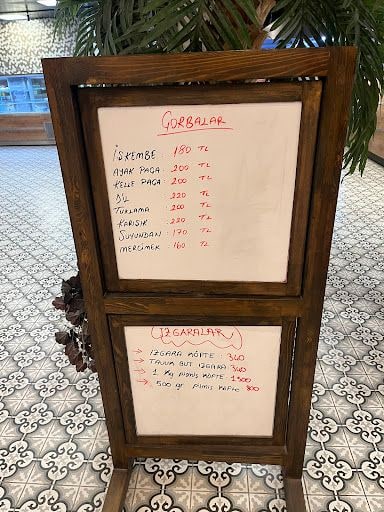 ÇORBALAR
İŞKEMBE 180 TL
AYAK PAÇA: 200 TL
KELLE PAÇA: 200 TL
DİL 220 TL
TUZLAMA : 200 TL
KARIŞIK : 220 TL
SUYUNDAN : 170 TL
MERCİMEK : 160 TL
IZGARALAR
→ IZGARA KÖFTE : 340
→ TAVUK BUT IZGARA: 340
→ 1 Kg PİŞMİŞ KÖFTE: 1500
→ 500 gr PİMİŞ KÖFTE: 800